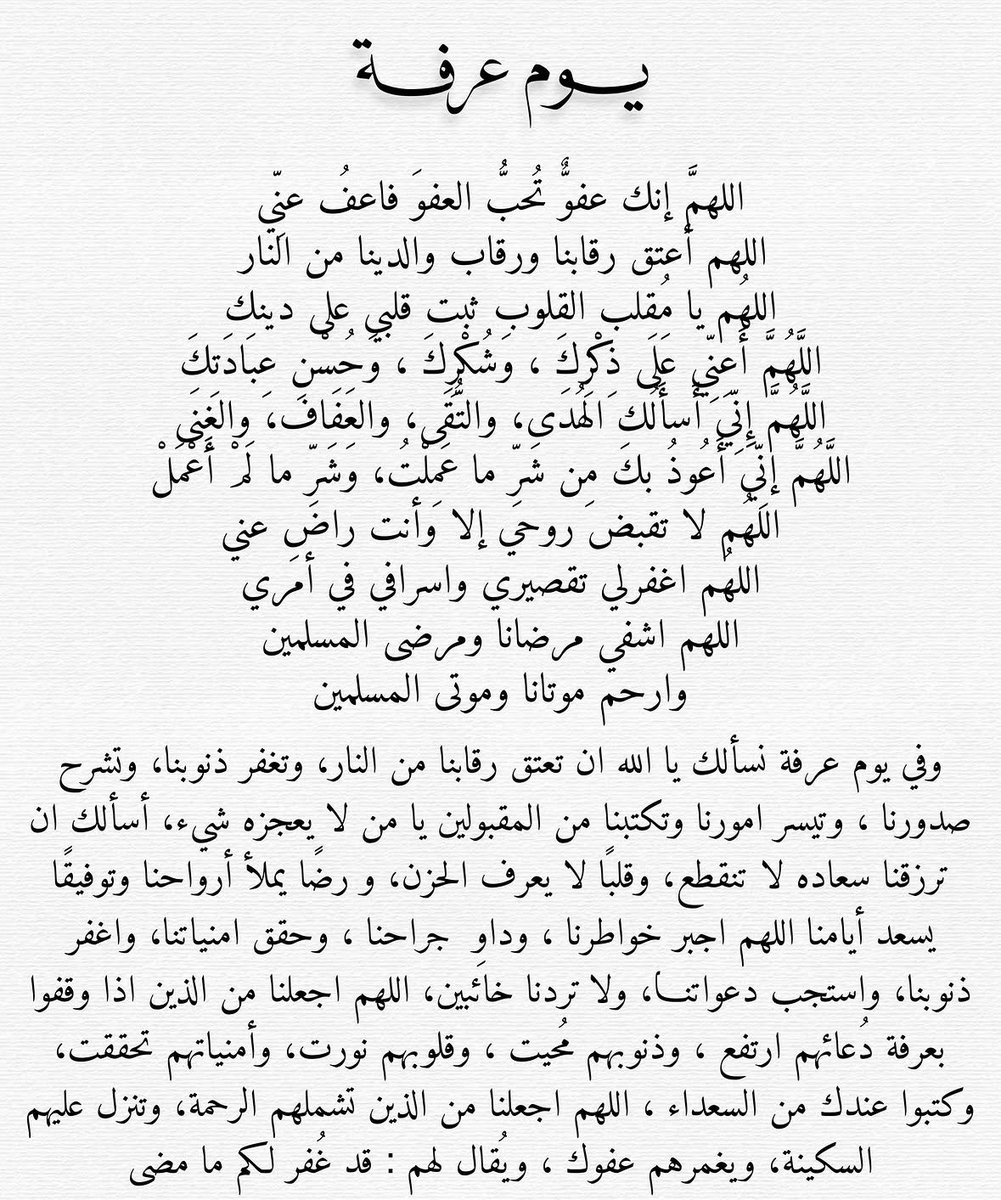 يوم عرفة
اللهمَّ إنك عفوٌّ تُحبُّ العفوَ فاعفُ عنِّي
اللهم أعتق رقابنا ورقاب والدينا من النار
اللهُم يا مُقلب القلوب ثبت قلبي على دينك
اللَّهُمَّ أَعنِّي عَلَى ذِكْرِكَ ، وَشُكْرِكَ ، وَحُسْنِ عِبَادَتِكَ
اللَّهُمَّ إِنِّي أَسأَلُكَ الهُدَى، والتُّقَى، والعَفَافَ، والغِنَى
اللَّهُمَّ إنِّي أَعُوذُ بكَ مِن شَرِّ ما عَمِلْتُ، وَشَرِّ ما لَمْ أَعْمَلْ
اللهُم لا تقبض روحي إلا وَأنت راضِ عني
اللهُم اغفرلي تقصيري واسرافي في أمري
اللهم اشفي مرضانا ومرضى المسلمين
وارحم موتانا وموتى المسلمين
وفي يوم عرفة نسألك يا الله ان تعتق رقابنا من النار، وتغفر ذنوبنا، وتشرح
صدورنا ، وتيسر امورنا وتكتبنا من المقبولين يا من لا يعجزه شيء، أسألك ان
ترزقنا سعاده لا تنقطع، وقلبًا لا يعرف الحزن، و رضًا يملأ أرواحنا وتوفيقًا
يسعد أيامنا اللهم اجبر خواطرنا ، وداوِ جراحنا ، وحقق امنياتنا، واغفر
ذنوبنا، واستجب دعواتنـا، ولا تردنا خائبين، اللهم اجعلنا من الذين اذا وقفوا
بعرفة دُعائهم ارتفع ، وذنوبهم مُحيت ، وقلوبهم نورت، وأمنياتهم تحققت،
وكتبوا عندك من السعداء ، اللهم اجعلنا من الذين تشملهم الرحمة، وتنزل عليهم
السكينة، ويغمرهم عفوك ، ويُقال لهم : قد غُفر لكم ما مضى